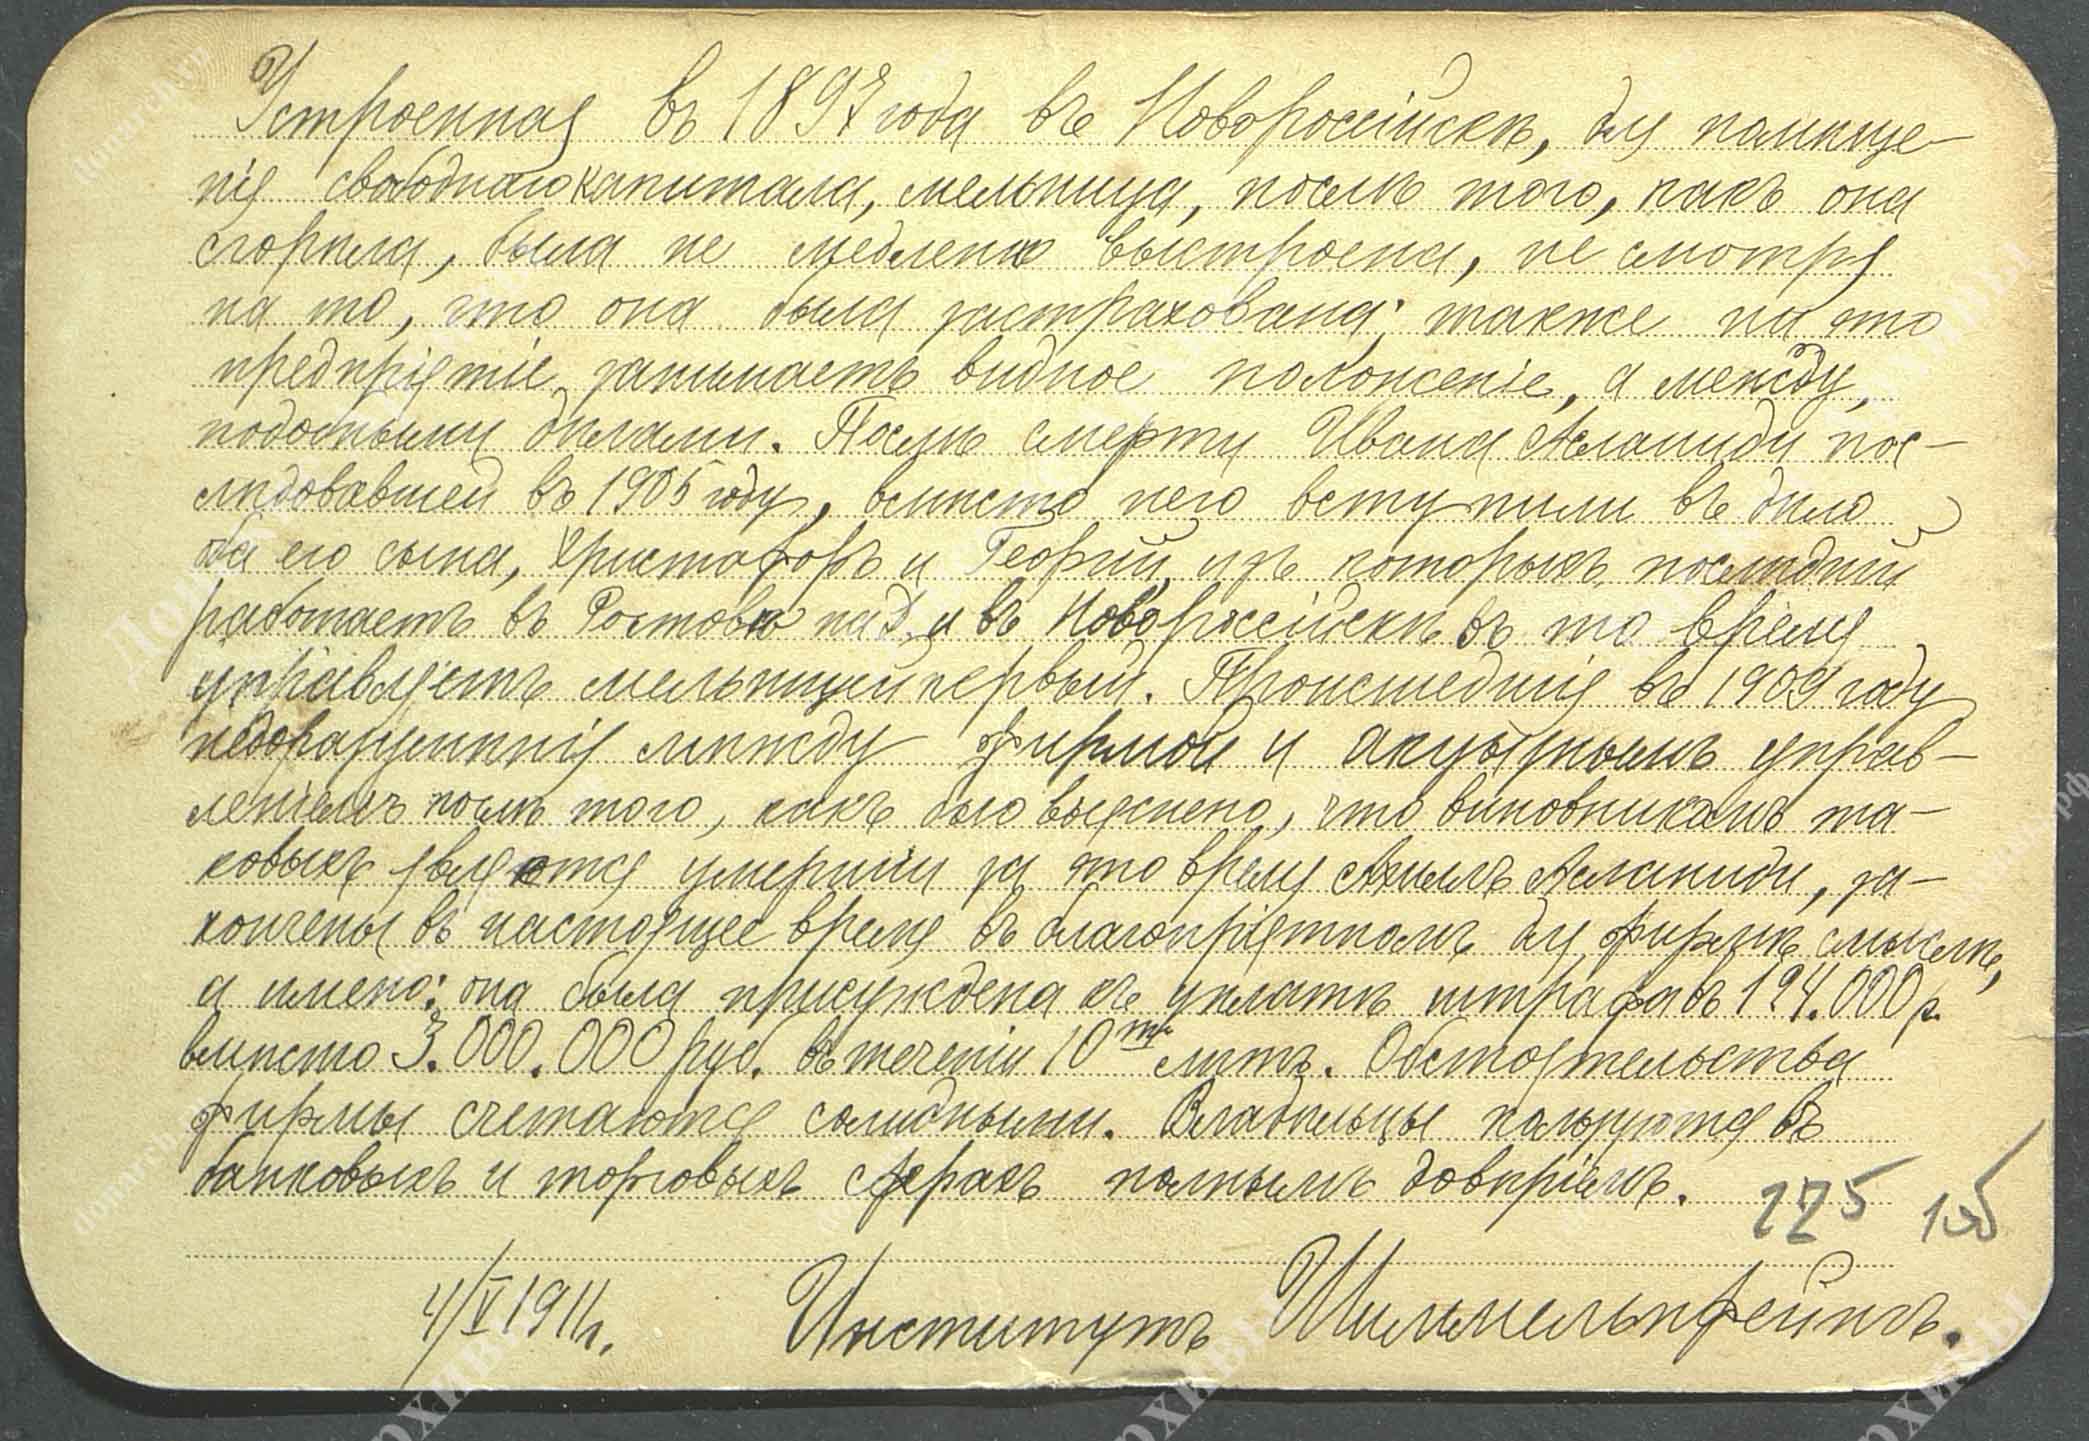 Устроенная въ 1897 года въ Новороссійскѣ, для помѣще-
нія свободнаго капитала, мельница, послѣ того, какъ она
сгорѣла, была не медленно выстроена, не смотря
на то, что она была застрахована; также на это
предпріятіе занимаетъ видное положеніе, а между
подобными дѣлами. Послѣ смерти Ивана Асланиди пос-
лѣдовавшей въ 1905 году, вмѣсто него вступили въ дѣло
два его сына, Христофоръ и Георгій, изъ которыхъ послѣдній
работаетъ въ Ростовѣ на Д. и въ Новороссійскѣ въ то время
управляетъ мельницей первый. Происшедшія въ 1909 году
недоразумѣнія между фирмой и акцызнымъ управ-
леніемъ послѣ того, какъ было выяснено, что виновникомъ та-
ковыхъ является умершій за это время Ахилъ Асланиди, за-
кончены въ настоящее время въ благопріятномъ для фирмы смыслѣ,
а имено: она была присуждена къ уплатѣ штрафа въ 124.000 р.
вмѣсто 3.000.000 руб. въ теченіи 10ти лѣтъ. Обстоятельства
фирмы счетаются солидными. Владѣльцы пользуются въ
банковыхъ и торговыхъ сферахъ полнымъ довѣріемъ.
225
4/V 1911 г. Институтъ Шиммельпфейнгъ.